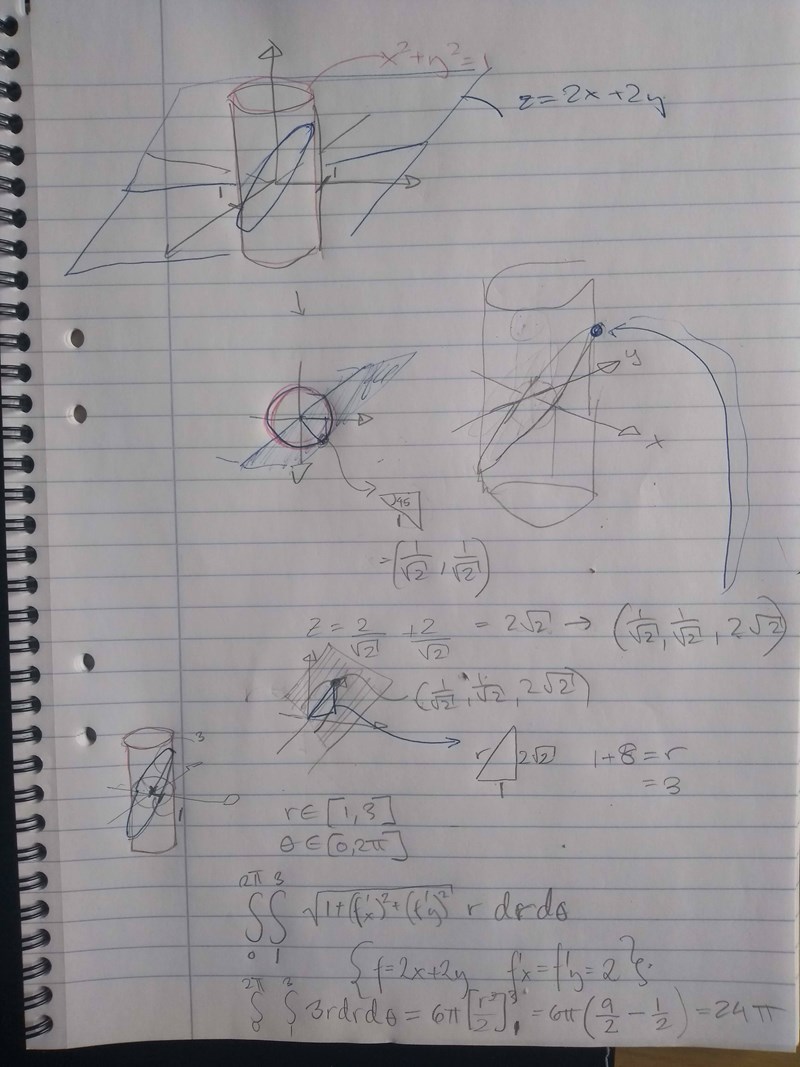 x²+y²=1
z=2x+2y
1
1
y
x
45
1
=(1/√2, 1/√2)
z = 2/√2 + 2/√2 = 2√2 → (1/√2, 1/√2, 2√2)
(1/√2, 1/√2, 2√2)
3
r 2√2 1+8=r
1 =3
1
r∈[1,3]
θ∈[0,2π]
2π 3
∫∫ √1+(f'x)²+(f'y)² r drdθ
0 1
{f=2x+2y f'x=f'y=2}
2π 3
∫ ∫ 3rdrdθ = 6π[r²/2]³₁ = 6π(9/2 − 1/2) = 24π
0 1